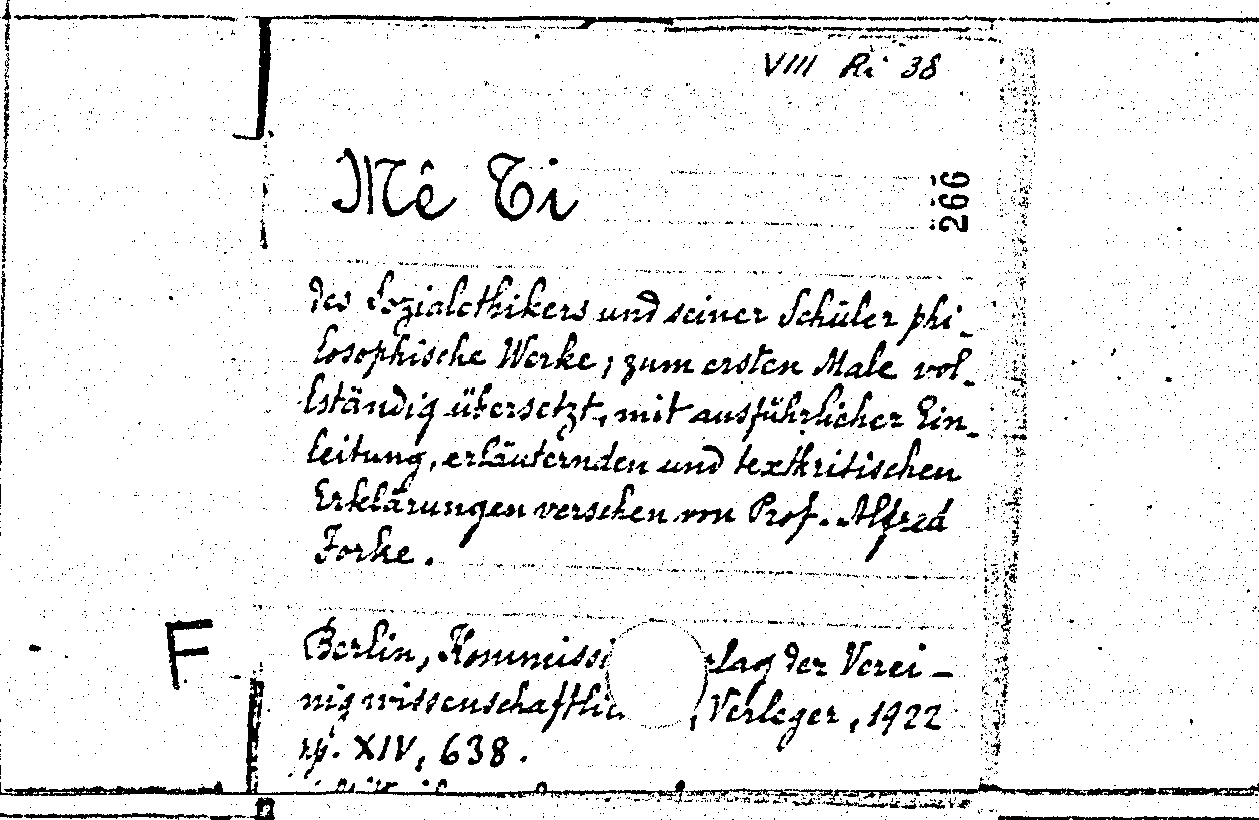 VIII Ri 38
Mê Ti
266
des Sozialethikers und seiner Schüler phi-
losophische Werke; zum ersten Male vol-
lständig übersetzt, mit ausführlicher Ein-
leitung, erläuternden und textkritischen
Erklärungen versehen von Prof. Alfred
Forke.
F
Berlin, Kommissi rlag der Verei-
nig wissenschaftlic Verleger, 1922
XIV, 638.